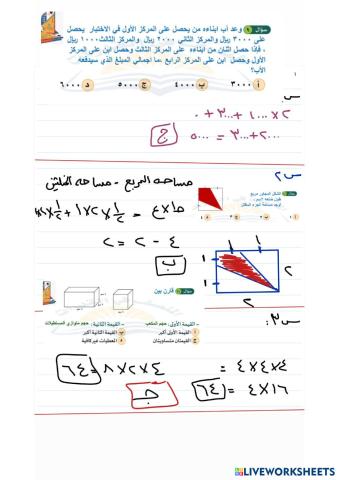 سؤال ١ وعد أب أبناءه من يحصل على المركز الأول في الاختبار يحصل
على ٣٠٠٠ ريال والمركز الثاني ٢٠٠٠ ريال والمركز الثالث ١٠٠٠ ريال
، فإذا حصل اثنان من أبناءه على المركز الثالث وحصل ابن على المركز
الأول وحصل ابن على المركز الرابع ،ما اجمالي المبلغ الذي سيدفعه
الأب؟
أ ٣٠٠٠ ب ٤٠٠٠ ج ٥٠٠٠ د ٦٠٠٠
٢×١٠٠٠ + ٣٠٠٠ + ٠
٢٠٠٠ + ٣٠٠٠ = ٥٠٠٠ ج
س٢
مساحة المربع - مساحة المثلثين
الشكل المجاور مربع
٤ - ٢ = ٢
ب
١ ١
١
١
٢
٢
قارن بين
س٣:
- القيمة الأولى: حجم المكعب
- القيمة الثانية: حجم متوازي المستطيلات
أ القيمة الأولى أكبر
ب القيمة الثانية أكبر
ج القيمتان متساويتان
د المعطيات غير كافية
٤×٤×٤ =
٨×٢×٤ = ٦٤
٤×١٦ = ٦٤
ج
LIVEWORKSHEETS